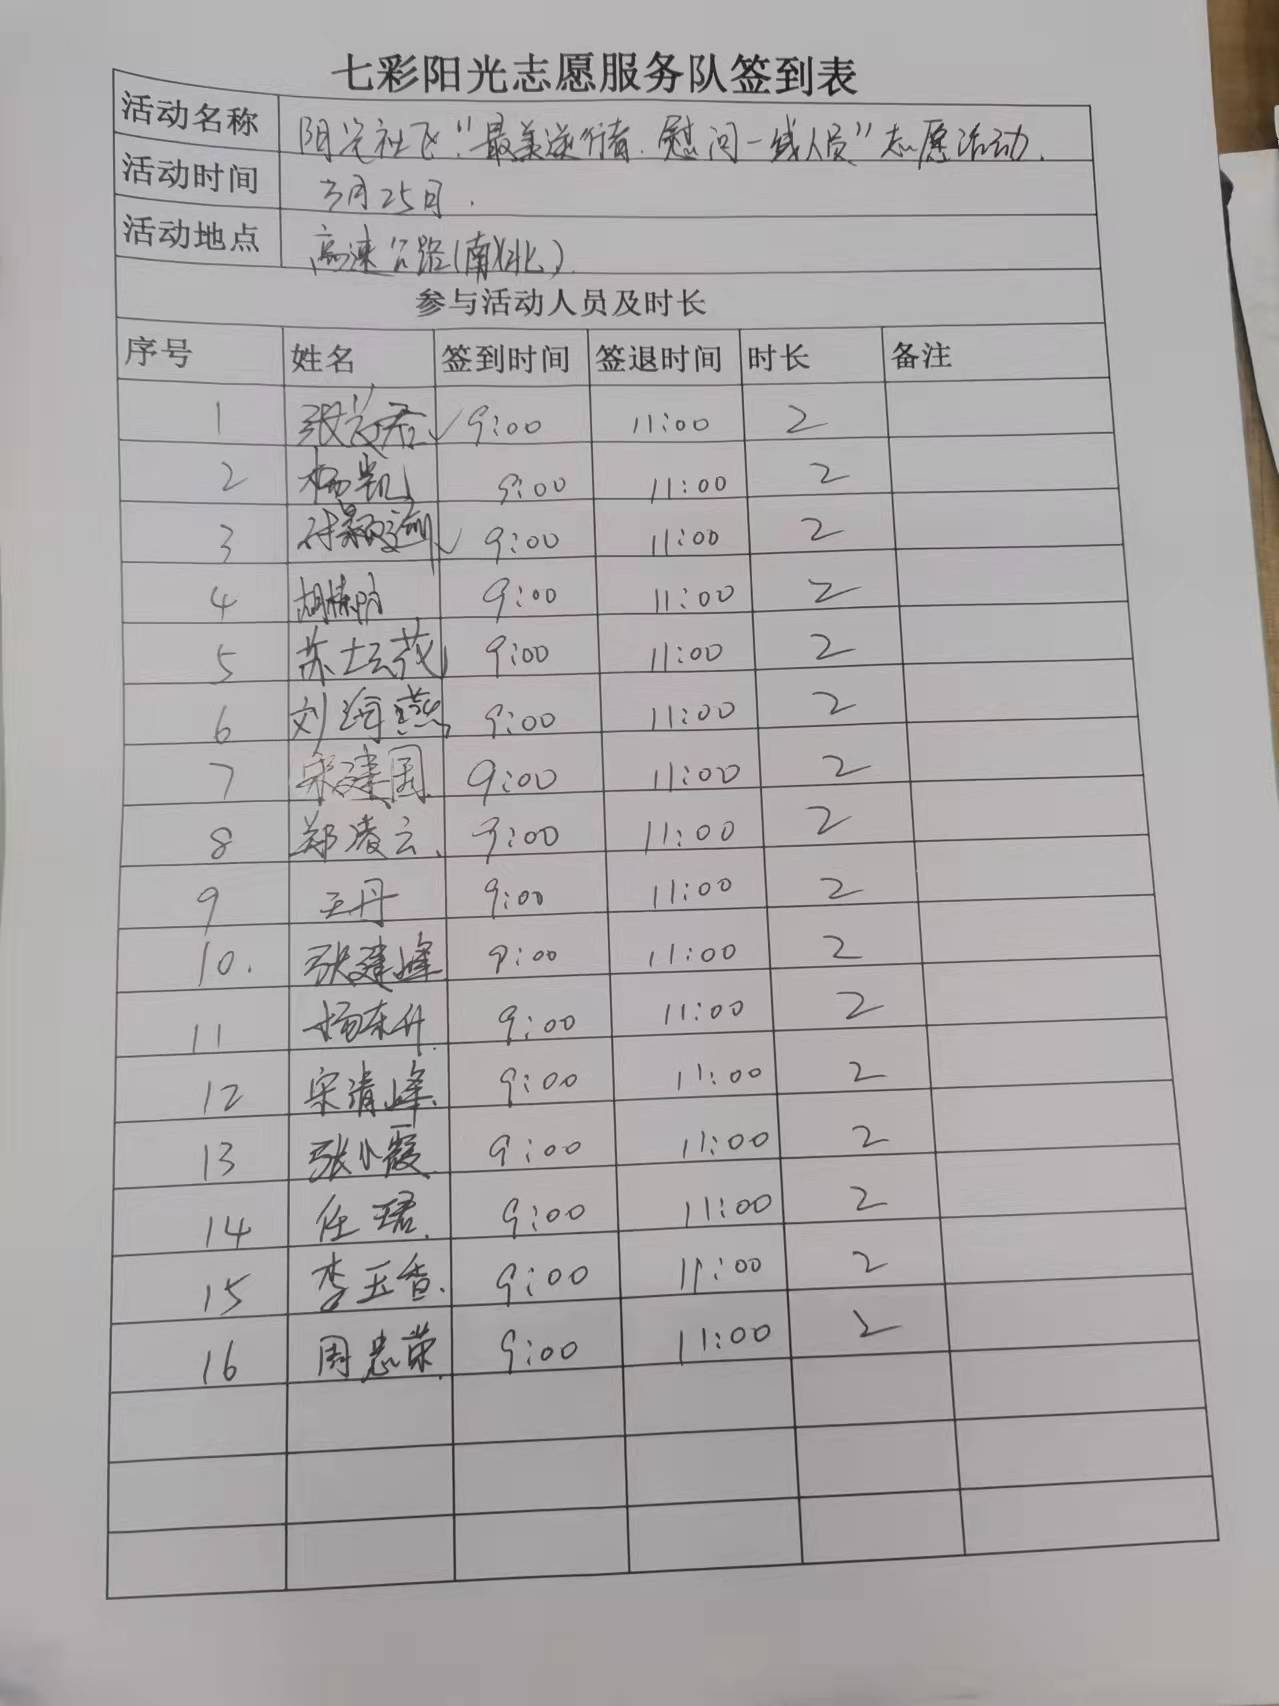 七彩阳光志愿服务队签到表
活动名称 阳光社区"最美逆行者.慰问一线人员"志愿活动.
活动时间 3月25日.
活动地点 高速公路(南北)
参与活动人员及时长
序号 姓名 签到时间 签退时间 时长 备注
1 张 君 9:00 11:00 2
2 杨凯 9:00 11:00 2
3 9:00 11:00 2
4 胡 9:00 11:00 2
5 苏 9:00 11:00 2
6 刘海燕 9:00 11:00 2
7 宋建国 9:00 11:00 2
8 郑凌云. 9:00 11:00 2
9 王丹 9:00 11:00 2
10. 张建峰 9:00 11:00 2
11 杨东升. 9:00 11:00 2
12 宋清峰. 9:00 11:00 2
13 张小霞. 9:00 11:00 2
14 任珺. 9:00 11:00 2
15 李玉香. 9:00 11:00 2
16 周忠荣. 9:00 11:00 2